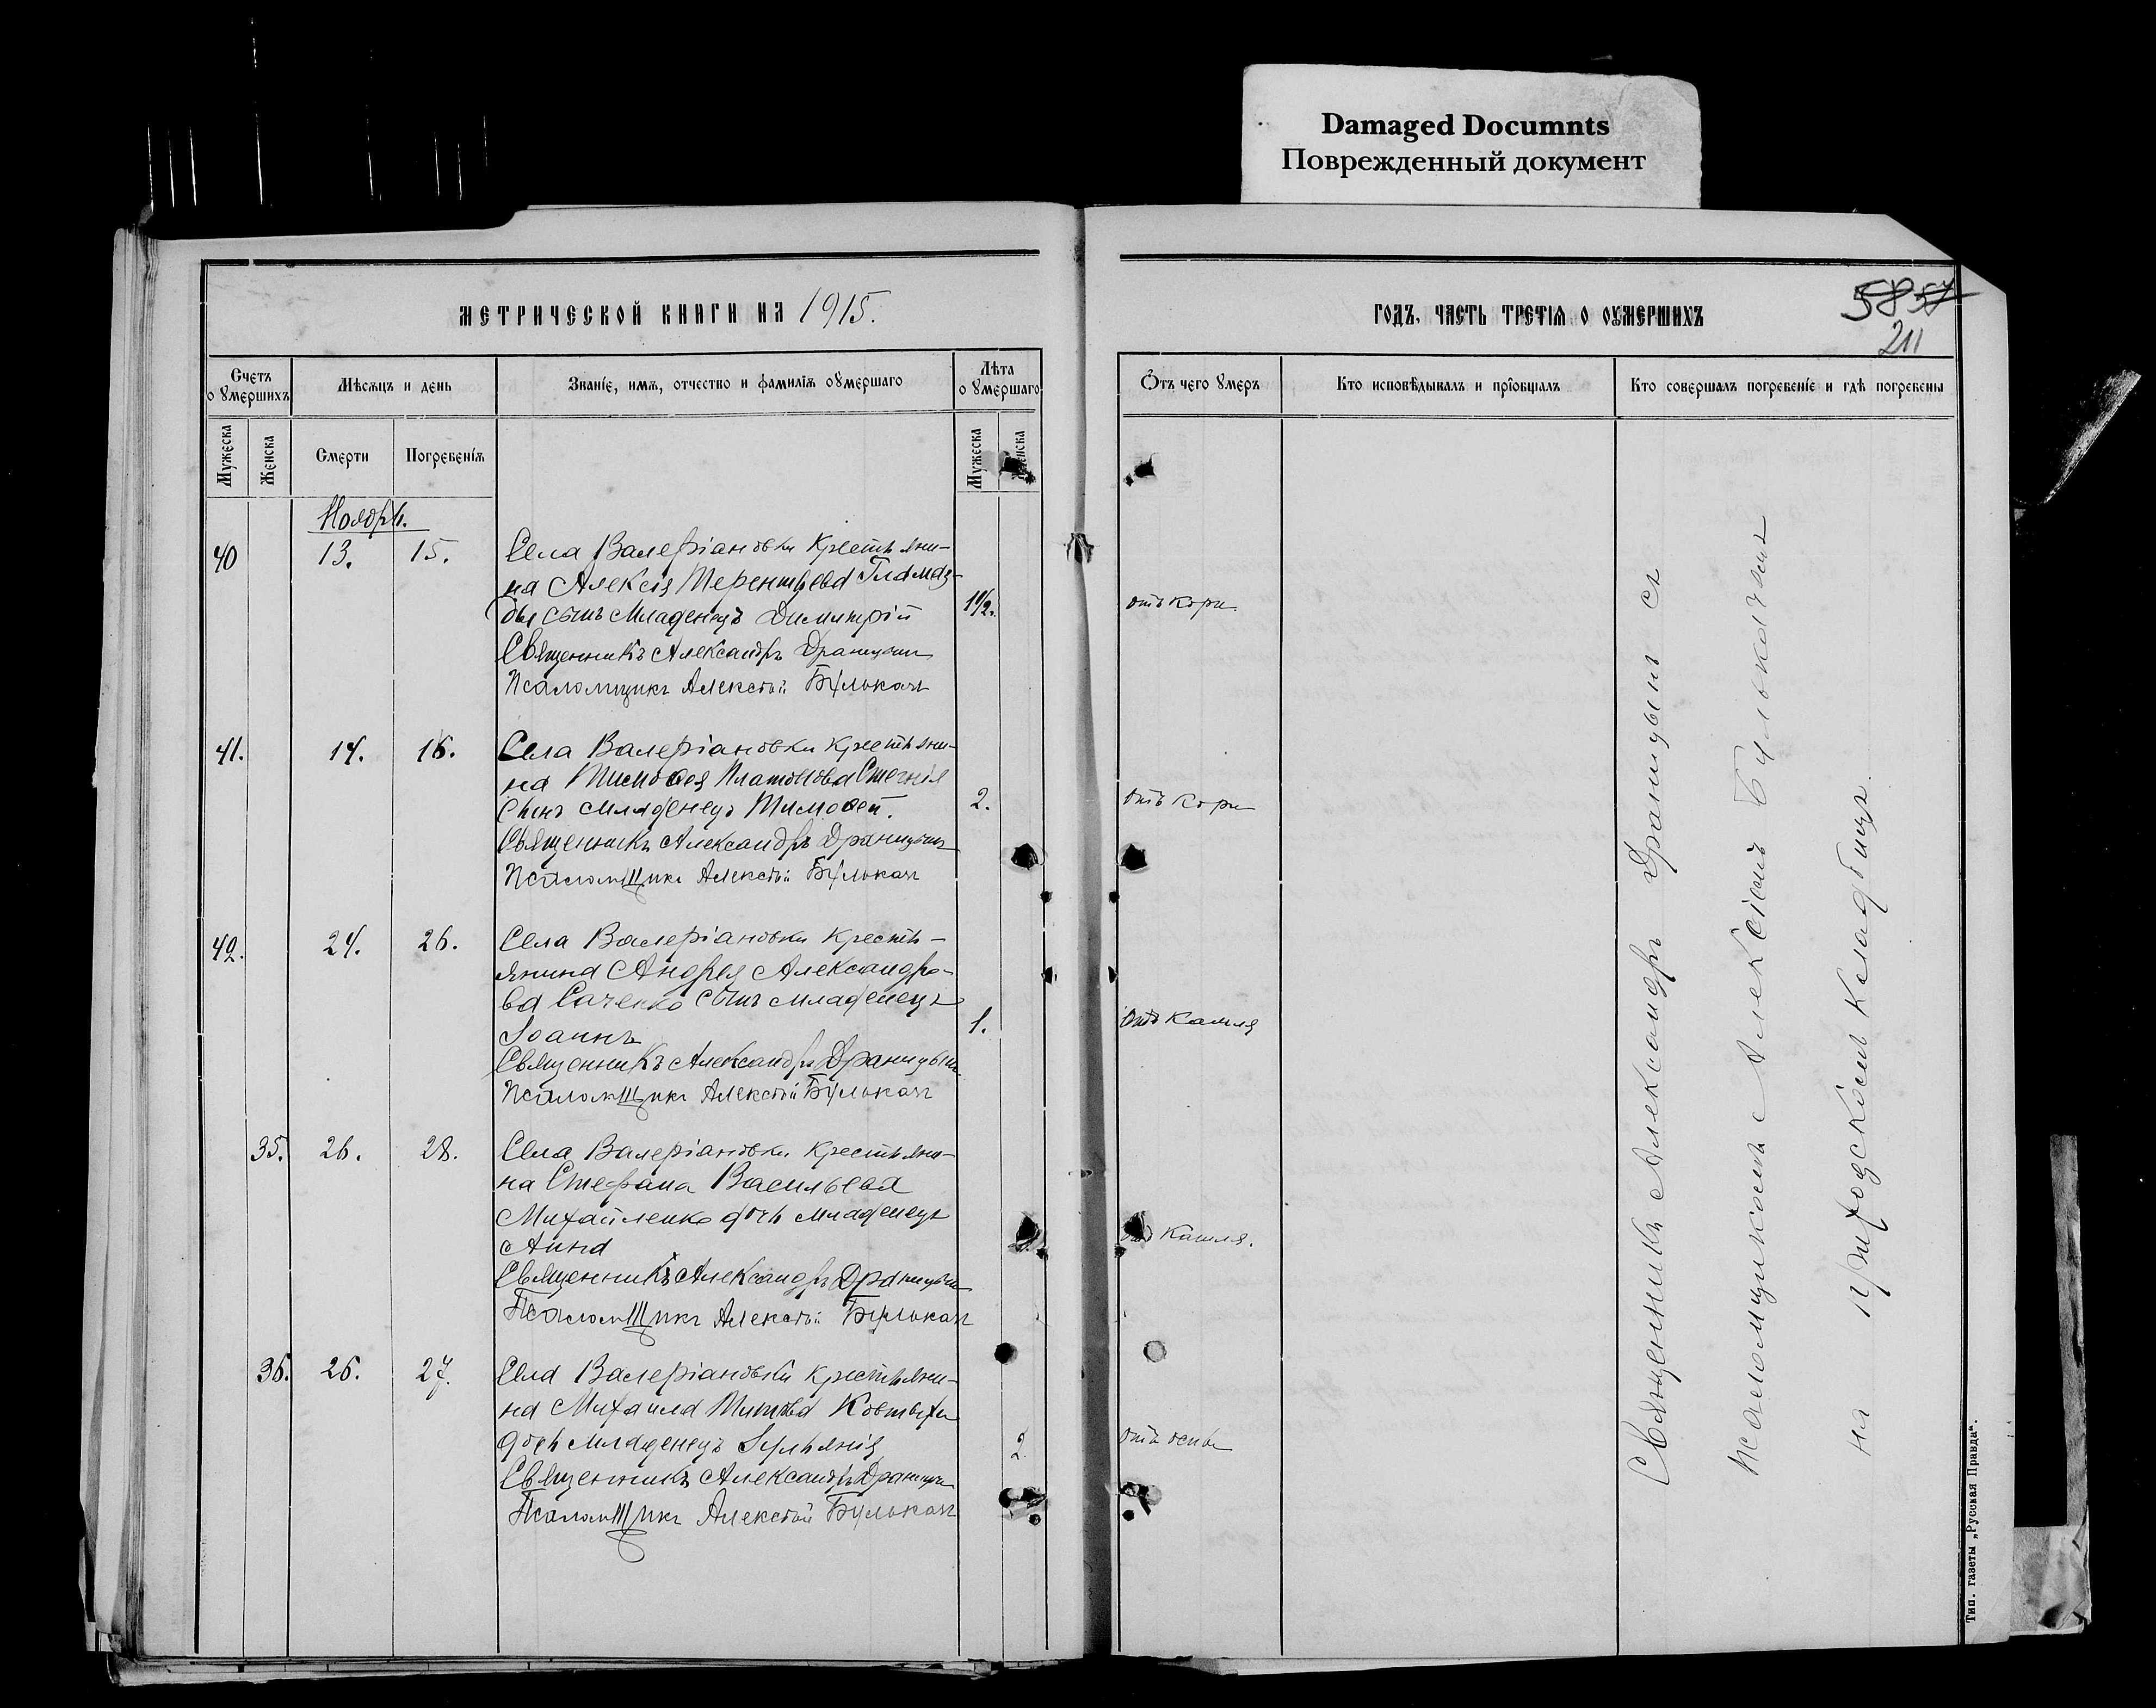 Damaged Documnts
Поврежденный документ
МЕТРИЧЕСКОЙ КНИГИ НА 1915.
ГОДЪ, ЧАСТЬ ТРЕТІЯ О ОУМЕРШИХЪ
5857
211
Счетъ о Ꙋмершихъ
Мѣсяцъ и день
Званіе, имя, отчество и фамилія оумершаго
Лѣта о Ꙋмершаго
Отъ чего умеръ
Кто исповѣдывалъ и пріобщалъ
Кто совершалъ погребеніе и гдѣ погребены
Мужеска
Женска
Смерти
Погребенія
Мужеска
Женска
Ноябрь.
40 13. 15. Села Валеріановки крестьяни-
на Алексія Терентьева Гламаз-
ды сынъ младенецъ Димитрій 1 1/2. отъ кори.
Священникъ Александръ Драницынъ
Псаломщикъ Алексѣй Булькачъ
41. 14. 16. Села Валеріановки крестьяни-
на Тимоѳея Платонова
сынъ младенецъ Тимоѳей. 2. отъ кори
Священникъ Александръ Драницынъ
Псаломщикъ Алексѣй Булькачъ
42. 24. 26. Села Валеріановки кресть-
янина Андрея Александро-
ва Саченко сынъ младенецъ
Іоаннъ 1. отъ кашля
Священникъ Александръ Драницынъ
Псаломщикъ Алексѣй Булькачъ
35. 26. 28. Села Валеріановки крестьяни-
на Стефана Васильева
Михайленко дочь младенецъ
Анна отъ кашля.
Священникъ Александръ Драницынъ
Псаломщикъ Алексѣй Булькачъ
36. 26. 27. Села Валеріановки крестьяни-
на Михаила Титова Ковтыхи
дочь младенецъ Іуліанія 2. отъ оспы
Священникъ Александръ Драницынъ
Псаломщикъ Алексѣй Булькачъ
Священникъ Александръ Драницынъ съ
псаломщикомъ Алексіемъ Булькачемъ
на приходскомъ кладбищѣ.
Тип. газеты „Русская Правда".